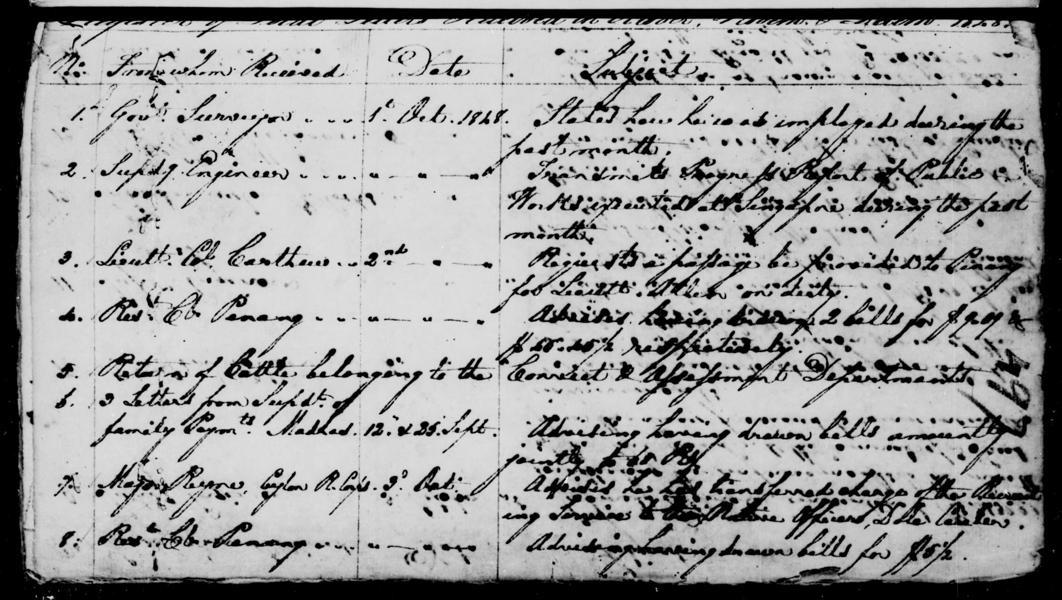 Register of Letters Received October, Novem. & Decem. 1848.
No. From whom Received Date Subject.
1. Govt. Surveyor 1st Oct. 1848. States how he was employed during the
past month.
2. Supdg. Engineer " " Transmits Progress Report of Public
Works executed at Singapore during the past
month.
3. Lieutt. Col. Carthew 2nd " " Requests a passage be provided to Penang
for Lieutt. on duty.
4. Rest. Cr. Penang " " " Advises having drawn 2 bills for
respectively
5. Return of Cattle belonging to the Convict & Assessment Departments
6. 3 Letters from Supdt. of
family Paymts. Madras. 12. & 25. Sept. Advising having drawn bills amountg.
jointly to
7. Major Ceylon R. 3d. Oct. Advises he has transferred charge of the
ing Service to Officer,
8. Rest. Cr. Penang " " Advising having drawn bills for